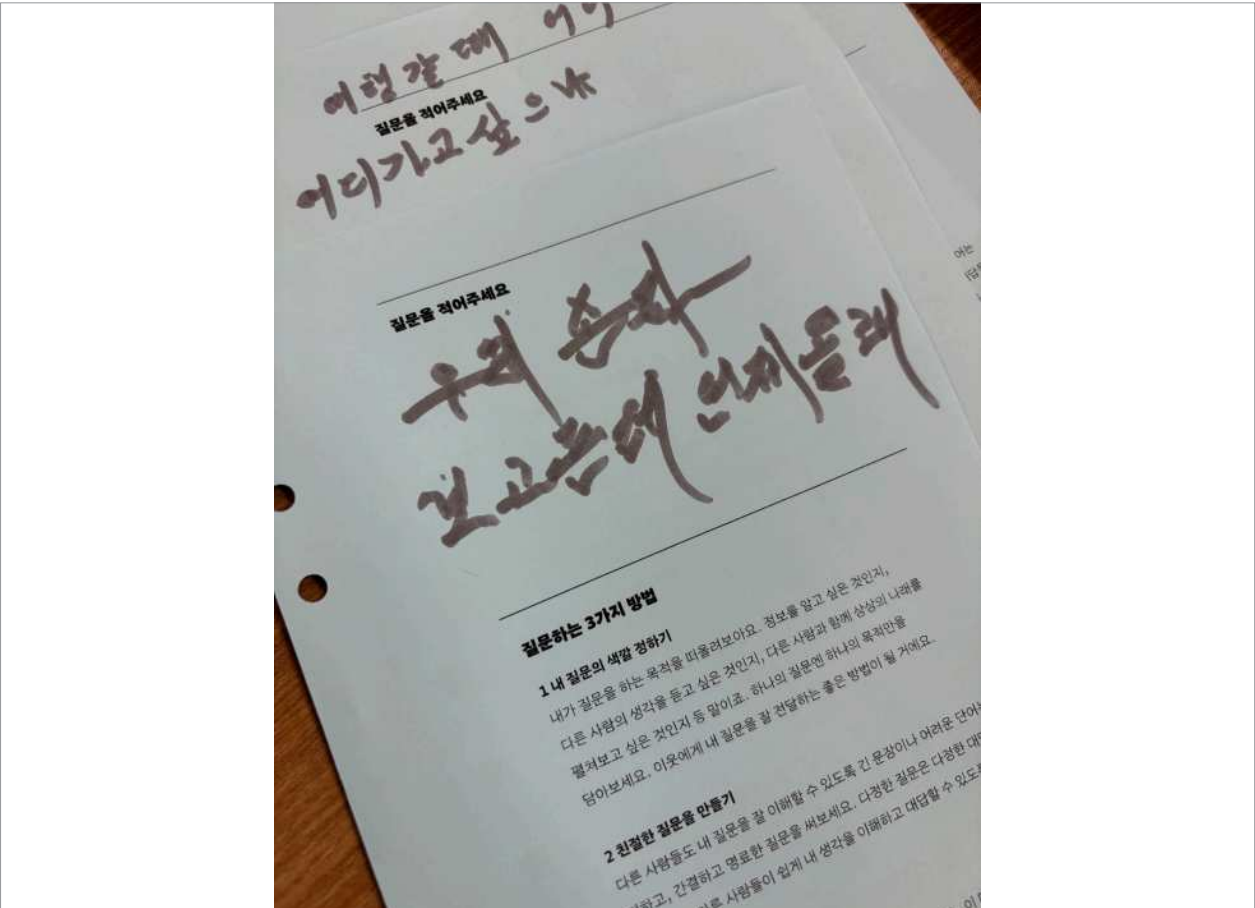 여행갈 때
질문을 적어주세요
어디가고싶으나
질문을 적어주세요
우리 손자
보고픈데 언제올래
질문하는 3가지 방법
1 내 질문의 색깔 정하기
내가 질문을 하는 목적을 떠올려보아요. 정보를 알고 싶은 것인지,
다른 사람의 생각을 듣고 싶은 것인지, 다른 사람과 함께 상상의 나래를
펼쳐보고 싶은 것인지 등 말이죠. 하나의 질문엔 하나의 목적만을
담아보세요. 이웃에게 내 질문을 잘 전달하는 좋은 방법이 될 거예요.
2 친절한 질문을 만들기
다른 사람들도 내 질문을 잘 이해할 수 있도록 긴 문장이나 어려운
하고, 간결하고 명료한 질문을 써보세요. 다정한 질문은 다정한
사람들이 쉽게 내 생각을 이해하고 대답할 수